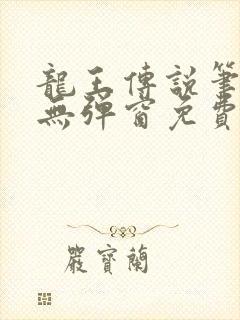 龍王傳說筆
無彈窗免費
嚴寶蘭